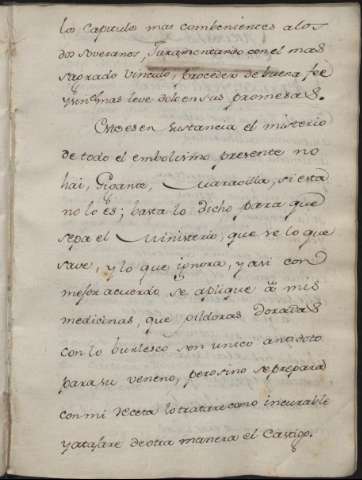 los Capitulos mas combenientes a los
dos soveranos, Juramentando con el mas
sagrado vinculo, proceder de buena fee
y sin el mas leve dolo en sus promesas.
Este es en sustancia el misterio
de todo el embolismo presente no
hai, Gigante, Maravilla, si esta
no lo es; basta lo dicho para que
sepa el Ministerio, que se lo que
save, y lo que ignora, y asi con
mejor acuerdo se aplique â mis
medicinas, que pildoras Doradas
con lo burlesco son unico antidoto
para su veneno, pero sino se prepara
con mi receta lo tratare como incurable
y atajare de otra manera el Castigo.